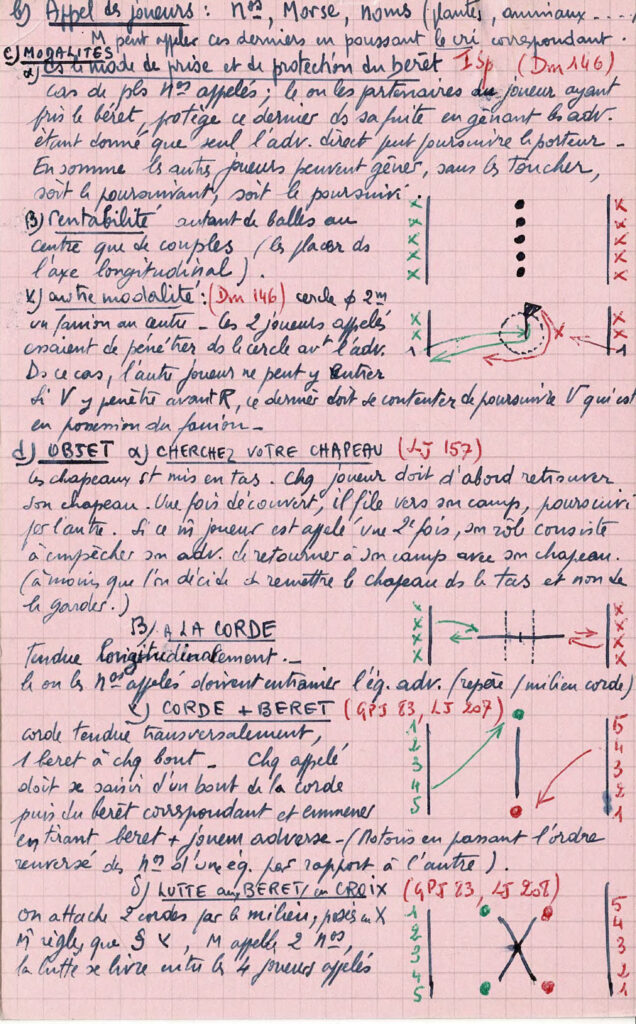 b) Appel des joueurs : Nos, Morse, noms (plantes, animaux ....,
M peut appeler ces derniers en poussant le cri correspondant.
c) MODALITÉS
α) ds le mode de prise et de protection du béret ISp (Dm 146)
cas de pls Nos appelés ; le ou les partenaires du joueur ayant
pris le béret, protège ce dernier ds sa fuite en gênant les adv.
étant donné que seul l'adv. direct peut poursuivre le porteur -
En somme les autres joueurs peuvent gêner, sans les toucher,
soit le poursuivant, soit le poursuivi.
β) rentabilité autant de balles au
centre que de couples (les placer ds
l'axe longitudinal).
γ) autre modalité : (Dm 146) cercle φ 2m
un fanion au centre - les 2 joueurs appelés
essaient de pénétrer ds le cercle avt l'adv.
Ds ce cas, l'autre joueur ne peut y entrer
Si V y pénètre avant R, ce dernier doit se contenter de poursuivre V qui est
en possession du fanion -
d) OBJET α) CHERCHEZ VOTRE CHAPEAU (LJ 157)
les chapeaux st mis en tas. Chq joueur doit d'abord retrouver
son chapeau. Une fois découvert, il file vers son camp, poursuivi
par l'autre. Si ce m̂ joueur est appelé une 2e fois, son rôle consiste
à empêcher son adv. de retourner à son camp avec son chapeau.
(à moins que l'on décide de remettre le chapeau ds le tas et non de
le garder.)
β) A LA CORDE
Tendue longitudinalement. -
le ou les Nos appelés doivent entraîner l'éq. adv. (repère / milieu corde)
γ) CORDE + BERET (GPJ 83, LJ 207)
corde tendue transversalement,
1 beret à chq bout - Chq appelé
doit se saisir d'un bout de la corde
puis du béret correspondant et emmener
en tirant beret + joueur adverse - (Notons en passant l'ordre
renversé des Nos d'une éq. par rapport à l'autre).
δ) LUTTE au BERET / en CROIX (GPJ 83, LJ 208)
on attache 2 cordes par le milieu, posées en X
M̂ règles que § γ, M appelle 2 Nos,
la lutte se livre entre les 4 joueurs appelés